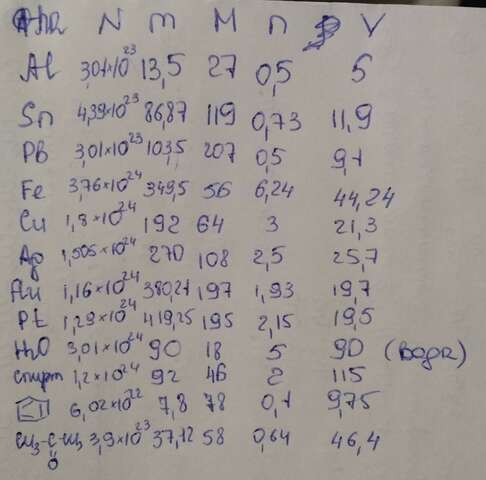 N m M n V
Al 3,01×10²³ 13,5 27 0,5 5
Sn 4,39×10²³ 86,87 119 0,73 11,9
PB 3,01×10²³ 103,5 207 0,5 9,1
Fe 3,76×10²⁴ 349,5 56 6,24 44,24
Cu 1,8×10²⁴ 192 64 3 21,3
Ag 1,505×10²⁴ 270 108 2,5 25,7
Au 1,16×10²⁴ 380,21 197 1,93 19,7
Pt 1,29×10²⁴ 419,25 195 2,15 19,5
H₂O 3,01×10²⁴ 90 18 5 90 (вода)
спирт 1,2×10²⁴ 92 46 2 115
6,02×10²² 7,8 78 0,1 9,75
CH₃-C-CH₃ 3,9×10²³ 37,12 58 0,64 46,4
O